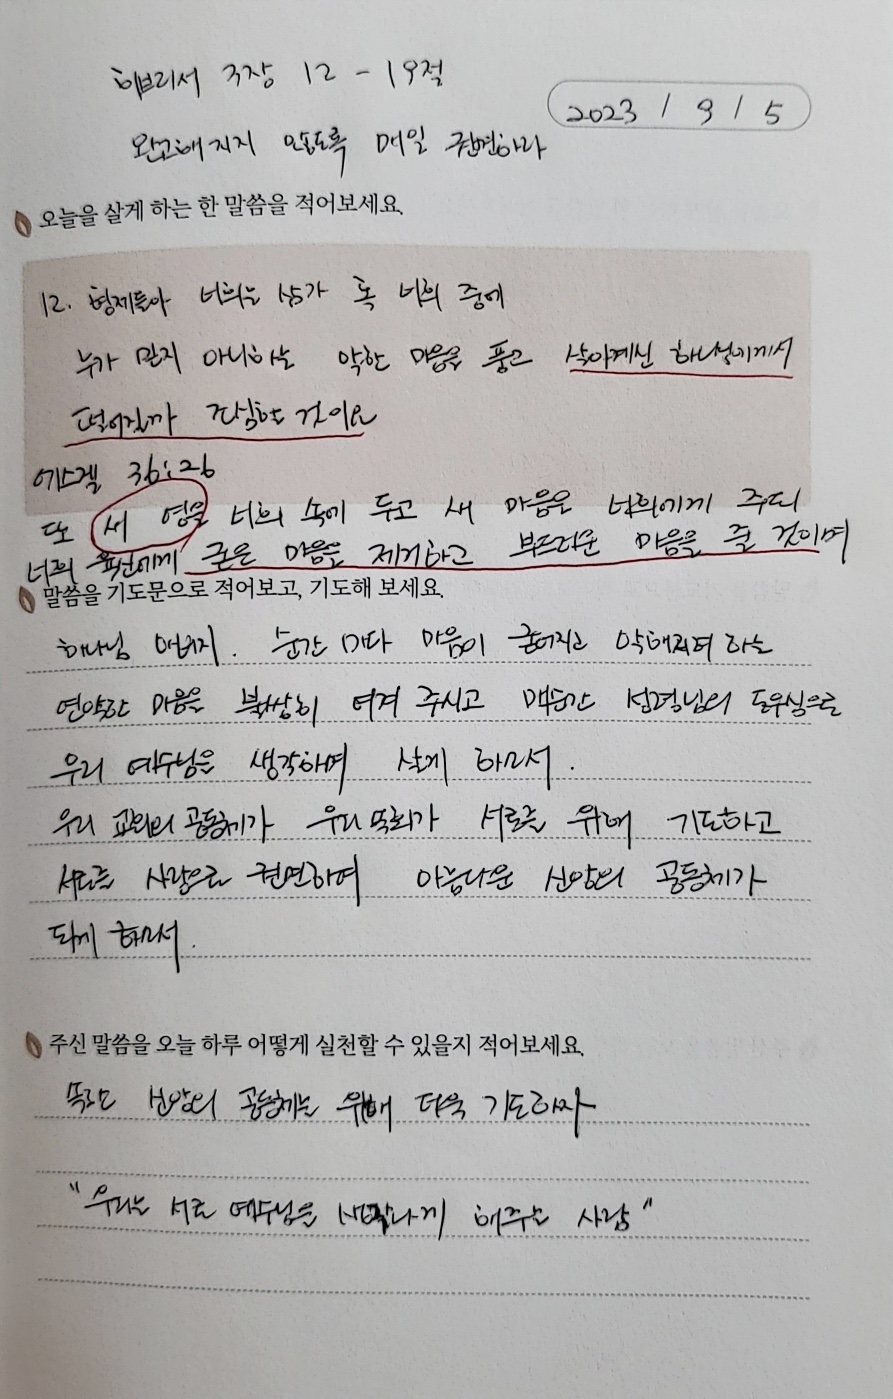 히브리서 3장 12 - 19절
2023 / 9 / 5
완고해지지 않도록 매일 권면하라
오늘을 살게 하는 한 말씀을 적어보세요.
12. 형제들아 너희는 삼가 혹 너희 중에
누가 믿지 아니하는 악한 마음을 품고 살아계신 하나님에게서
떨어질까 조심할 것이요
에스겔 36:26
또 새 영을 너희 속에 두고 새 마음을 너희에게 주되
너희 육신에게 굳은 마음을 제거하고 부드러운 마음을 줄 것이며
말씀을 기도문으로 적어보고, 기도해 보세요.
하나님 아버지. 순간 마다 마음이 굳어지고 악해지려 하는
연약한 마음을 불쌍히 여겨 주시고 매순간 성령님의 도우심으로
우리 예수님을 생각하며 살게 하소서.
우리 교회의 공동체가 우리 목회가 서로를 위해 기도하고
서로를 사랑으로 권면하며 아름다운 신앙의 공동체가
되게 하소서.
주신 말씀을 오늘 하루 어떻게 실천할 수 있을지 적어보세요.
신앙의 공동체를 위해 더욱 기도하자
"우리는 서로 예수님을 생각나게 해주는 사람"